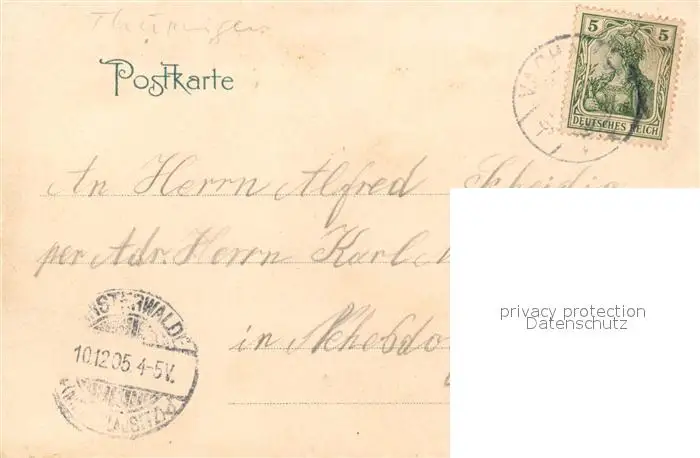 Thüringen
Postkarte
5 5
DEUTSCHES REICH
VACH
An Herrn Alfred Scheidig
per Adr. Herrn Karl
in
privacy protection
Datenschutz
NSTERWALDE
10.12.05. 4-5V.